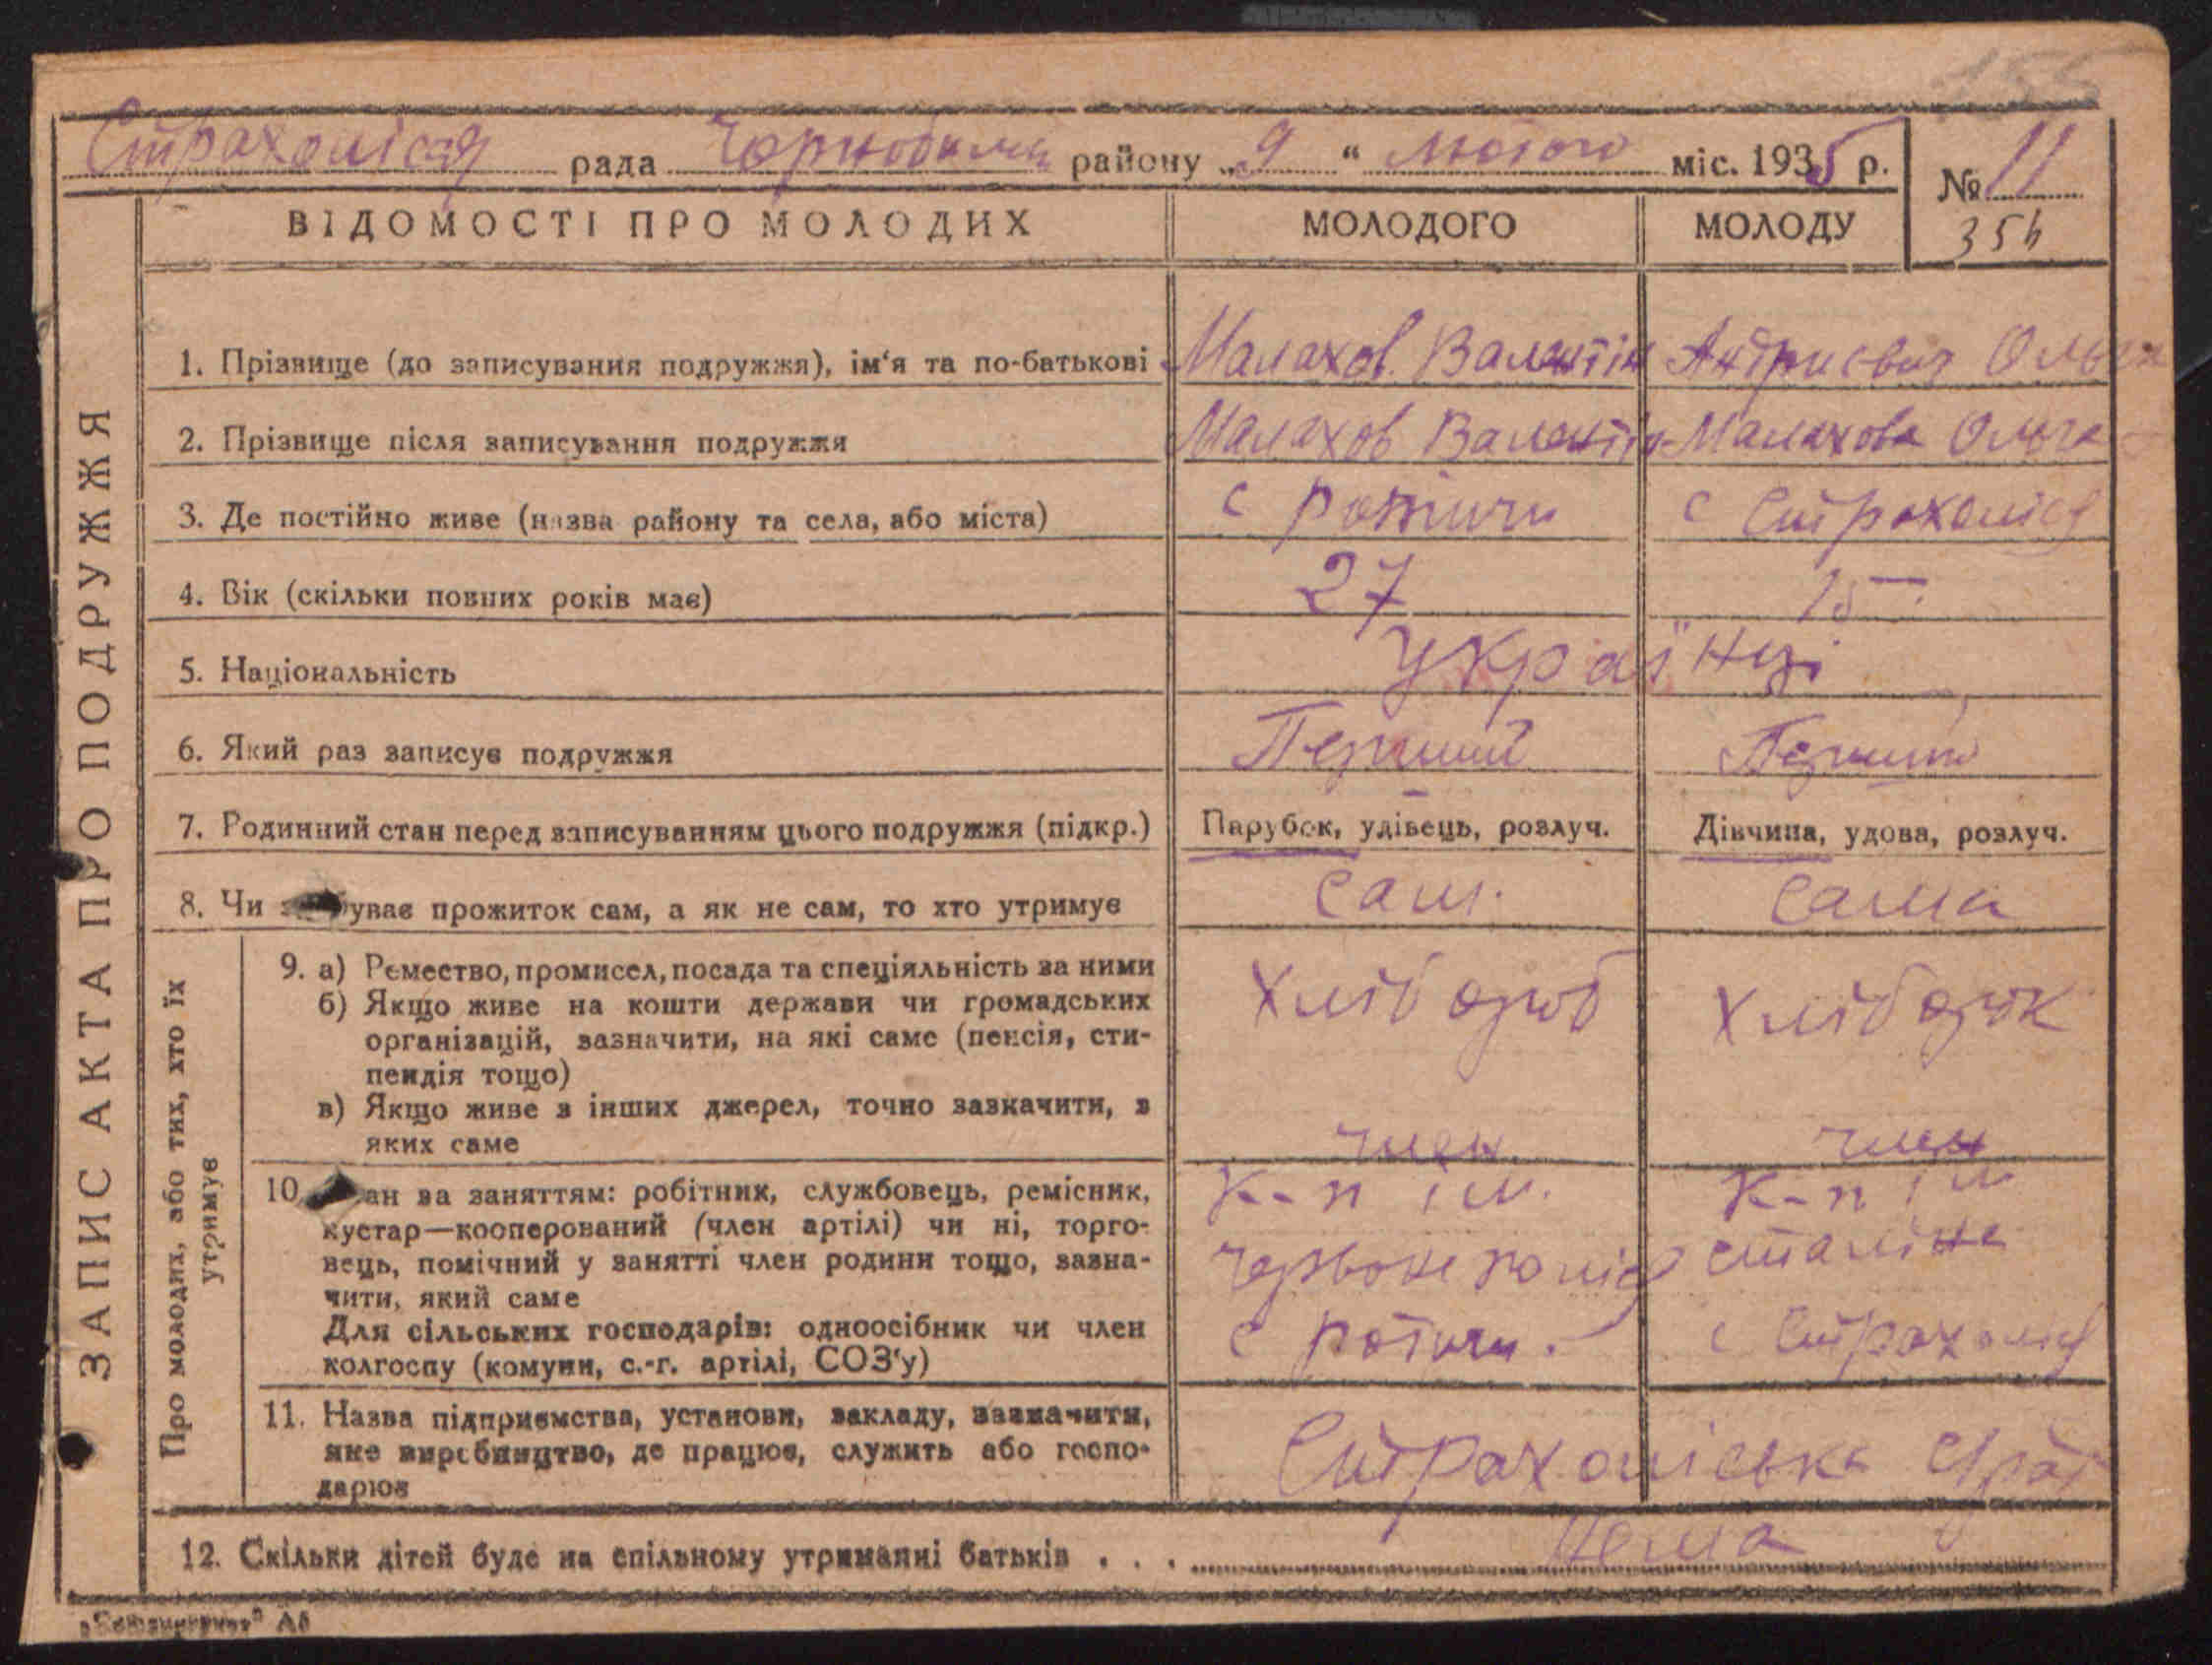 155
Страхолісся рада Чорнобиль району „ 9 “ Лютого міс. 1935 р.
№ 11
354
ВІДОМОСТІ ПРО МОЛОДИХ МОЛОДОГО МОЛОДУ
ЗАПИС АКТА ПРО ПОДРУЖЖЯ
1. Прізвище (до записування подружжя), ім‘я та по-батькові Малахов Валентін Андриевич Ольга
2. Прізвище після записування подружжя Малахов Валентін Малахова Ольга
3. Де постійно живе (назва району та села, або міста) с Ротичи с Страхоліся
4. Вік (скільки повних років має) 27
5. Національність Українці
6. Який раз записує подружжя Перший Перший
7. Родинний стан перед записуванням цього подружжя (підкр.) Парубок, удівець, розлуч. Дівчина, удова, розлуч.
8. Чи ував прожиток сам, а як не сам, то хто утримує Сам. Сама
Про молодих, або тих, хто їх утримує
9. а) Ремество, промисел, посада та спеціяльність за ними Хлібороб Хлібороб
б) Якщо живе на кошти держави чи громадських
організацій, зазначити, на які саме (пенсія, сти-
пендія тощо)
в) Якщо живе з інших джерел, точно зазначити, з
яких саме член член
10. ан за заняттям: робітник, службовець, ремісник, К-п ім. К-п ім
кустар—кооперований (член артілі) чи ні, торго-
вець, помічний у занятті член родини тощо, зазна- Червоне поліся сталіна
чити, який саме
Для сільських господарів: одноосібник чи член с Ротичи. с Страхоліся
колгоспу (комуни, с.-г. артілі, СОЗ‘у)
11. Назва підприємства, установи, закладу, зазначити,
яке виробництво, де працює, служить або госпо- Страхоліська с/рад
дарює
12. Скільки дітей буде на спільному утриманні батьків . . . Нема